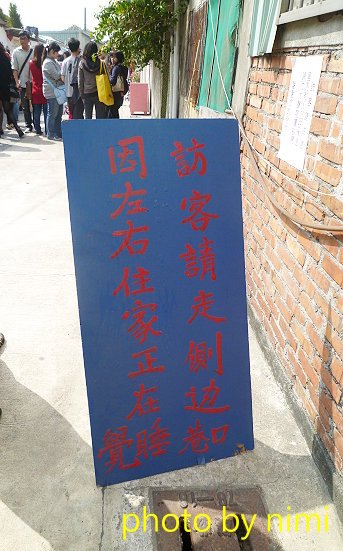 訪客請走側边巷口
因左右住家正在睡覺
photo by nimi